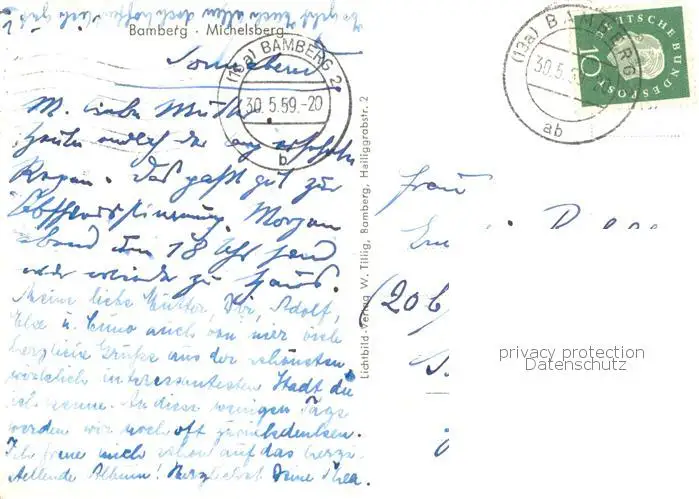 Bamberg · Michelsberg
Sonnabend
M. liebe Mutter
Heute endlich der
Regen. Das paßt gut zur
Abschiedsstimmung. Morgen
abend um 18 Uhr sind
wir wieder zu Haus.
Meine liebe Mutter, Dir, Adolf,
Else u. Cuno auch von hier viele
herzliche Grüße aus der schönsten
wirklich interessantesten Stadt die
ich kenne. An diese wenigen Tage
werden wir noch oft zurückdenken.
Ich freue mich schon auf das herzu-
stellende Album! Herzlichst Deine Thea.
(13a) BAMBERG 2
30.5.59.-20
b
Lichtbild-Verlag W. Tillig, Bamberg, Heiliggrabstr. 2
(13a) BAMBERG
30.5.
ab
DEUTSCHE BUNDESPOST
10
Frau
(20b)
privacy protection
Datenschutz